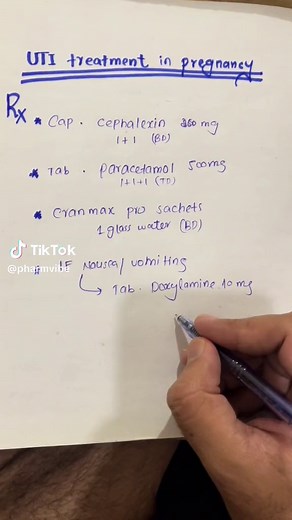 UTI treatment in pregnancy
Rx
* Cap. cephalexin mg
1+1 (BD)
* Tab. paracetamol 500mg
1+1+1 (TD)
* Cranmax pro sachets
1 glass water (BD)
TikTok
@pharmvibe
* IF Nausea/vomiting
Tab. Doxylamine 10mg